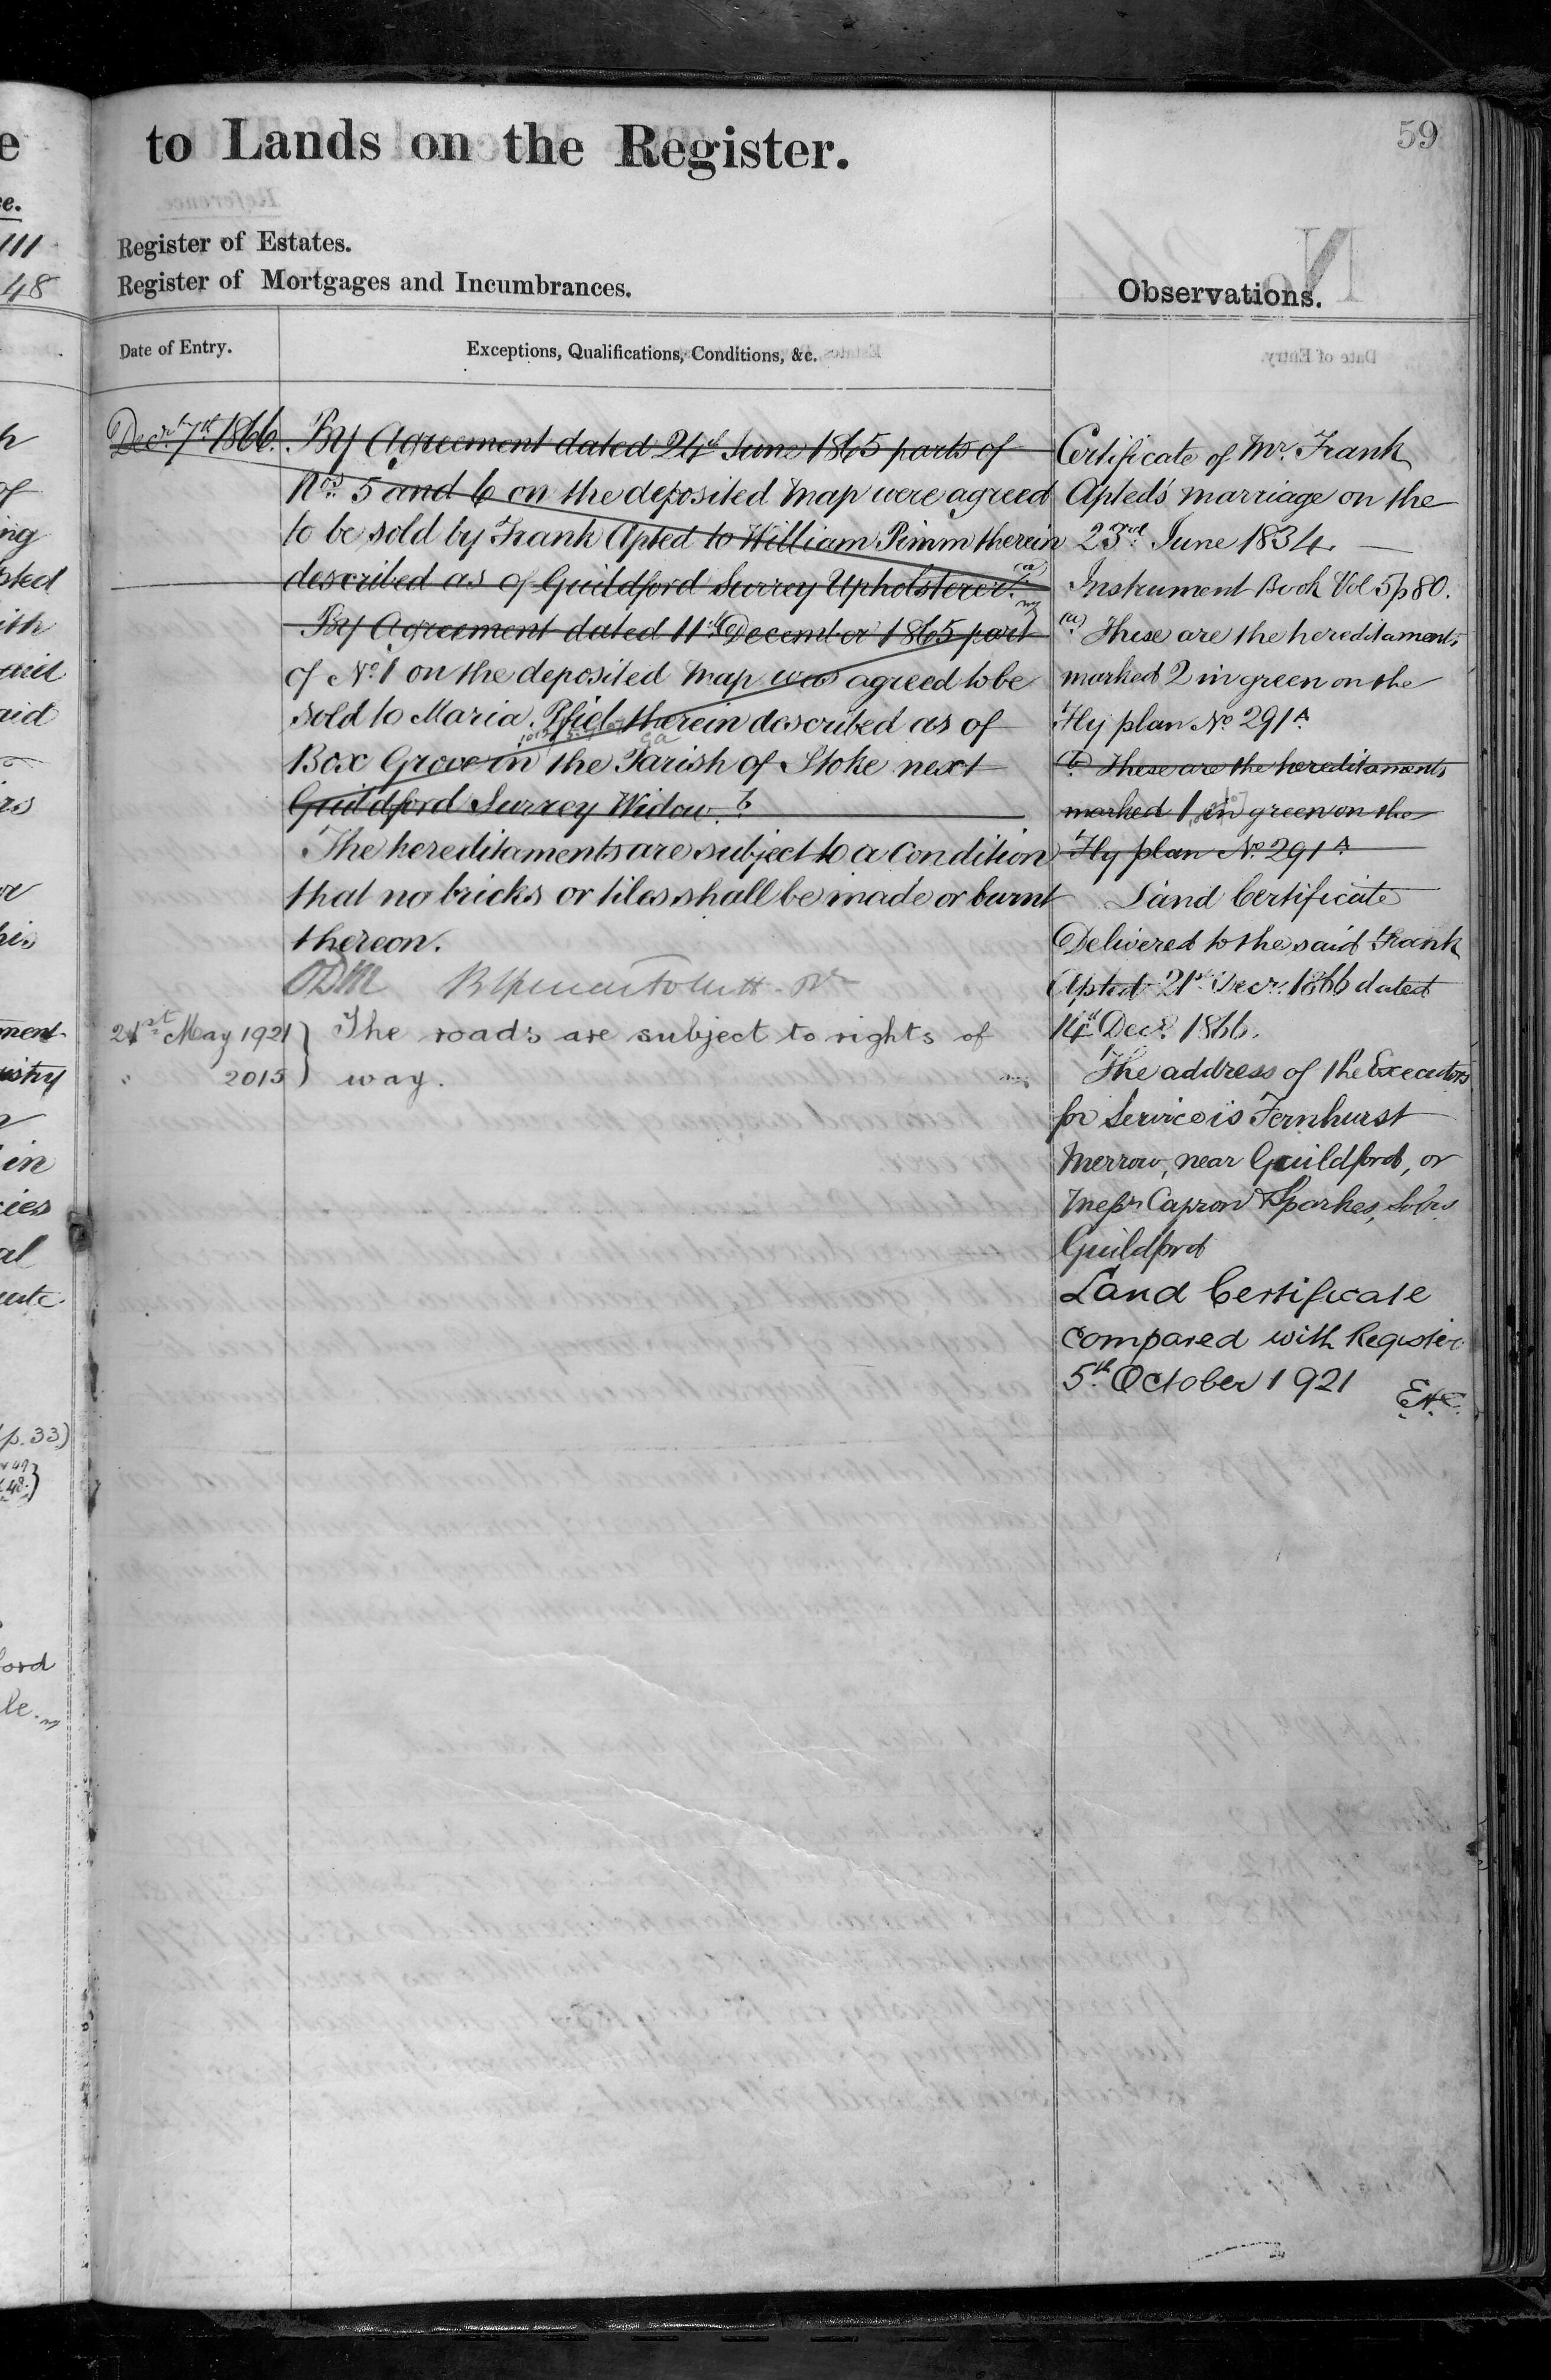 to Lands on the Register.
59
Register of Estates.
Register of Mortgages and Incumbrances.
Observations.
Date of Entry.
Exceptions, Qualifications, Conditions, &c.
Decr 7th 1866.
By Agreement dated 24th June 1865 parts of
Nos 5 and 6 on the deposited Map were agreed
to be sold by Frank Apted to William Pimm therein
described as of Guildford Surrey Upholsterer. (a)
By Agreement dated 11th December 1865 part
of No. 1 on the deposited Map was agreed to be
sold to Maria Pfiel therein described as of
Box Grove in the Parish of Stoke next
Guildford Surrey Widow. b
The hereditaments are subject to a Condition
that no bricks or tiles shall be made or burnt
thereon.
21st May 1921
" 2015
The roads are subject to rights of
way.
Certificate of Mr. Frank
Apted's marriage on the
23rd June 1834.
Instrument Book Vol 5 p 80.
(a) These are the hereditaments
marked 2 in green on the
Fly plan No. 291A
(b) These are the hereditaments
marked 1 in green on the
Fly plan No. 291A
Land Certificate
Delivered to the said Frank
Apted 21st Decr. 1866 dated
14th Decr. 1866.
The address of the Executors
for Service is Fernhurst
Merrow, near Guildford, or
Messrs Capron & Sparkes, Solrs
Guildford
Land Certificate
compared with Register
5th October 1921
e
e.
111
48
h
of
ing
pted
ith
aid
or
his
ment
in
cies
al
p. 33)
48
ford
le.